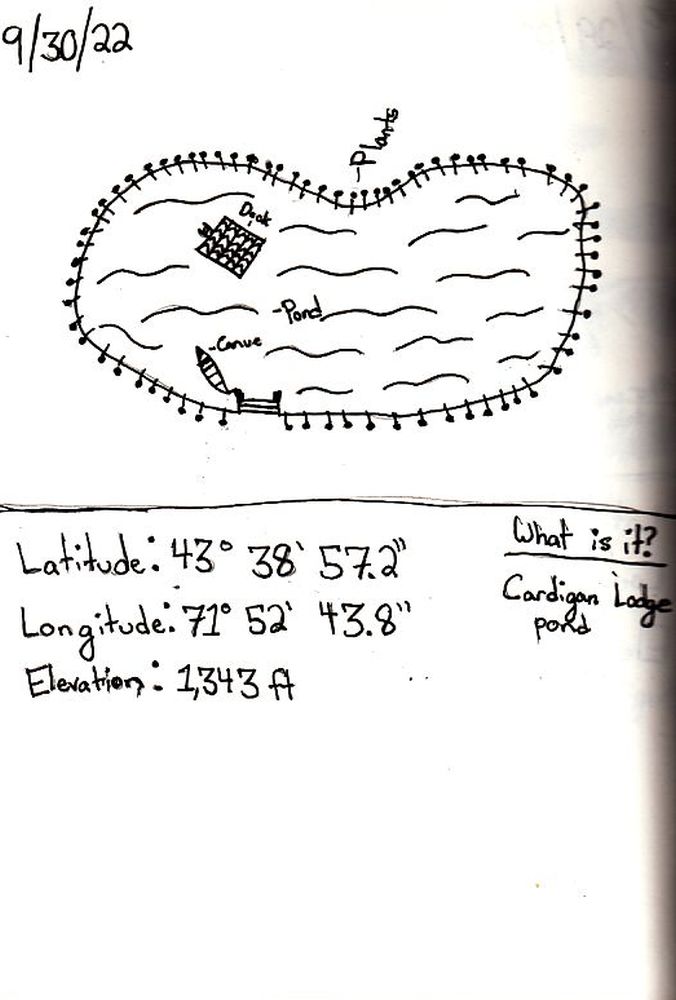 9/30/22
-Plants
Dock
-Pond
-Canue
Latitude: 43° 38' 57.2"
Longitude: 71° 52' 43.8"
Elevation: 1,343 ft
What is it?
Cardigan Lodge
pond